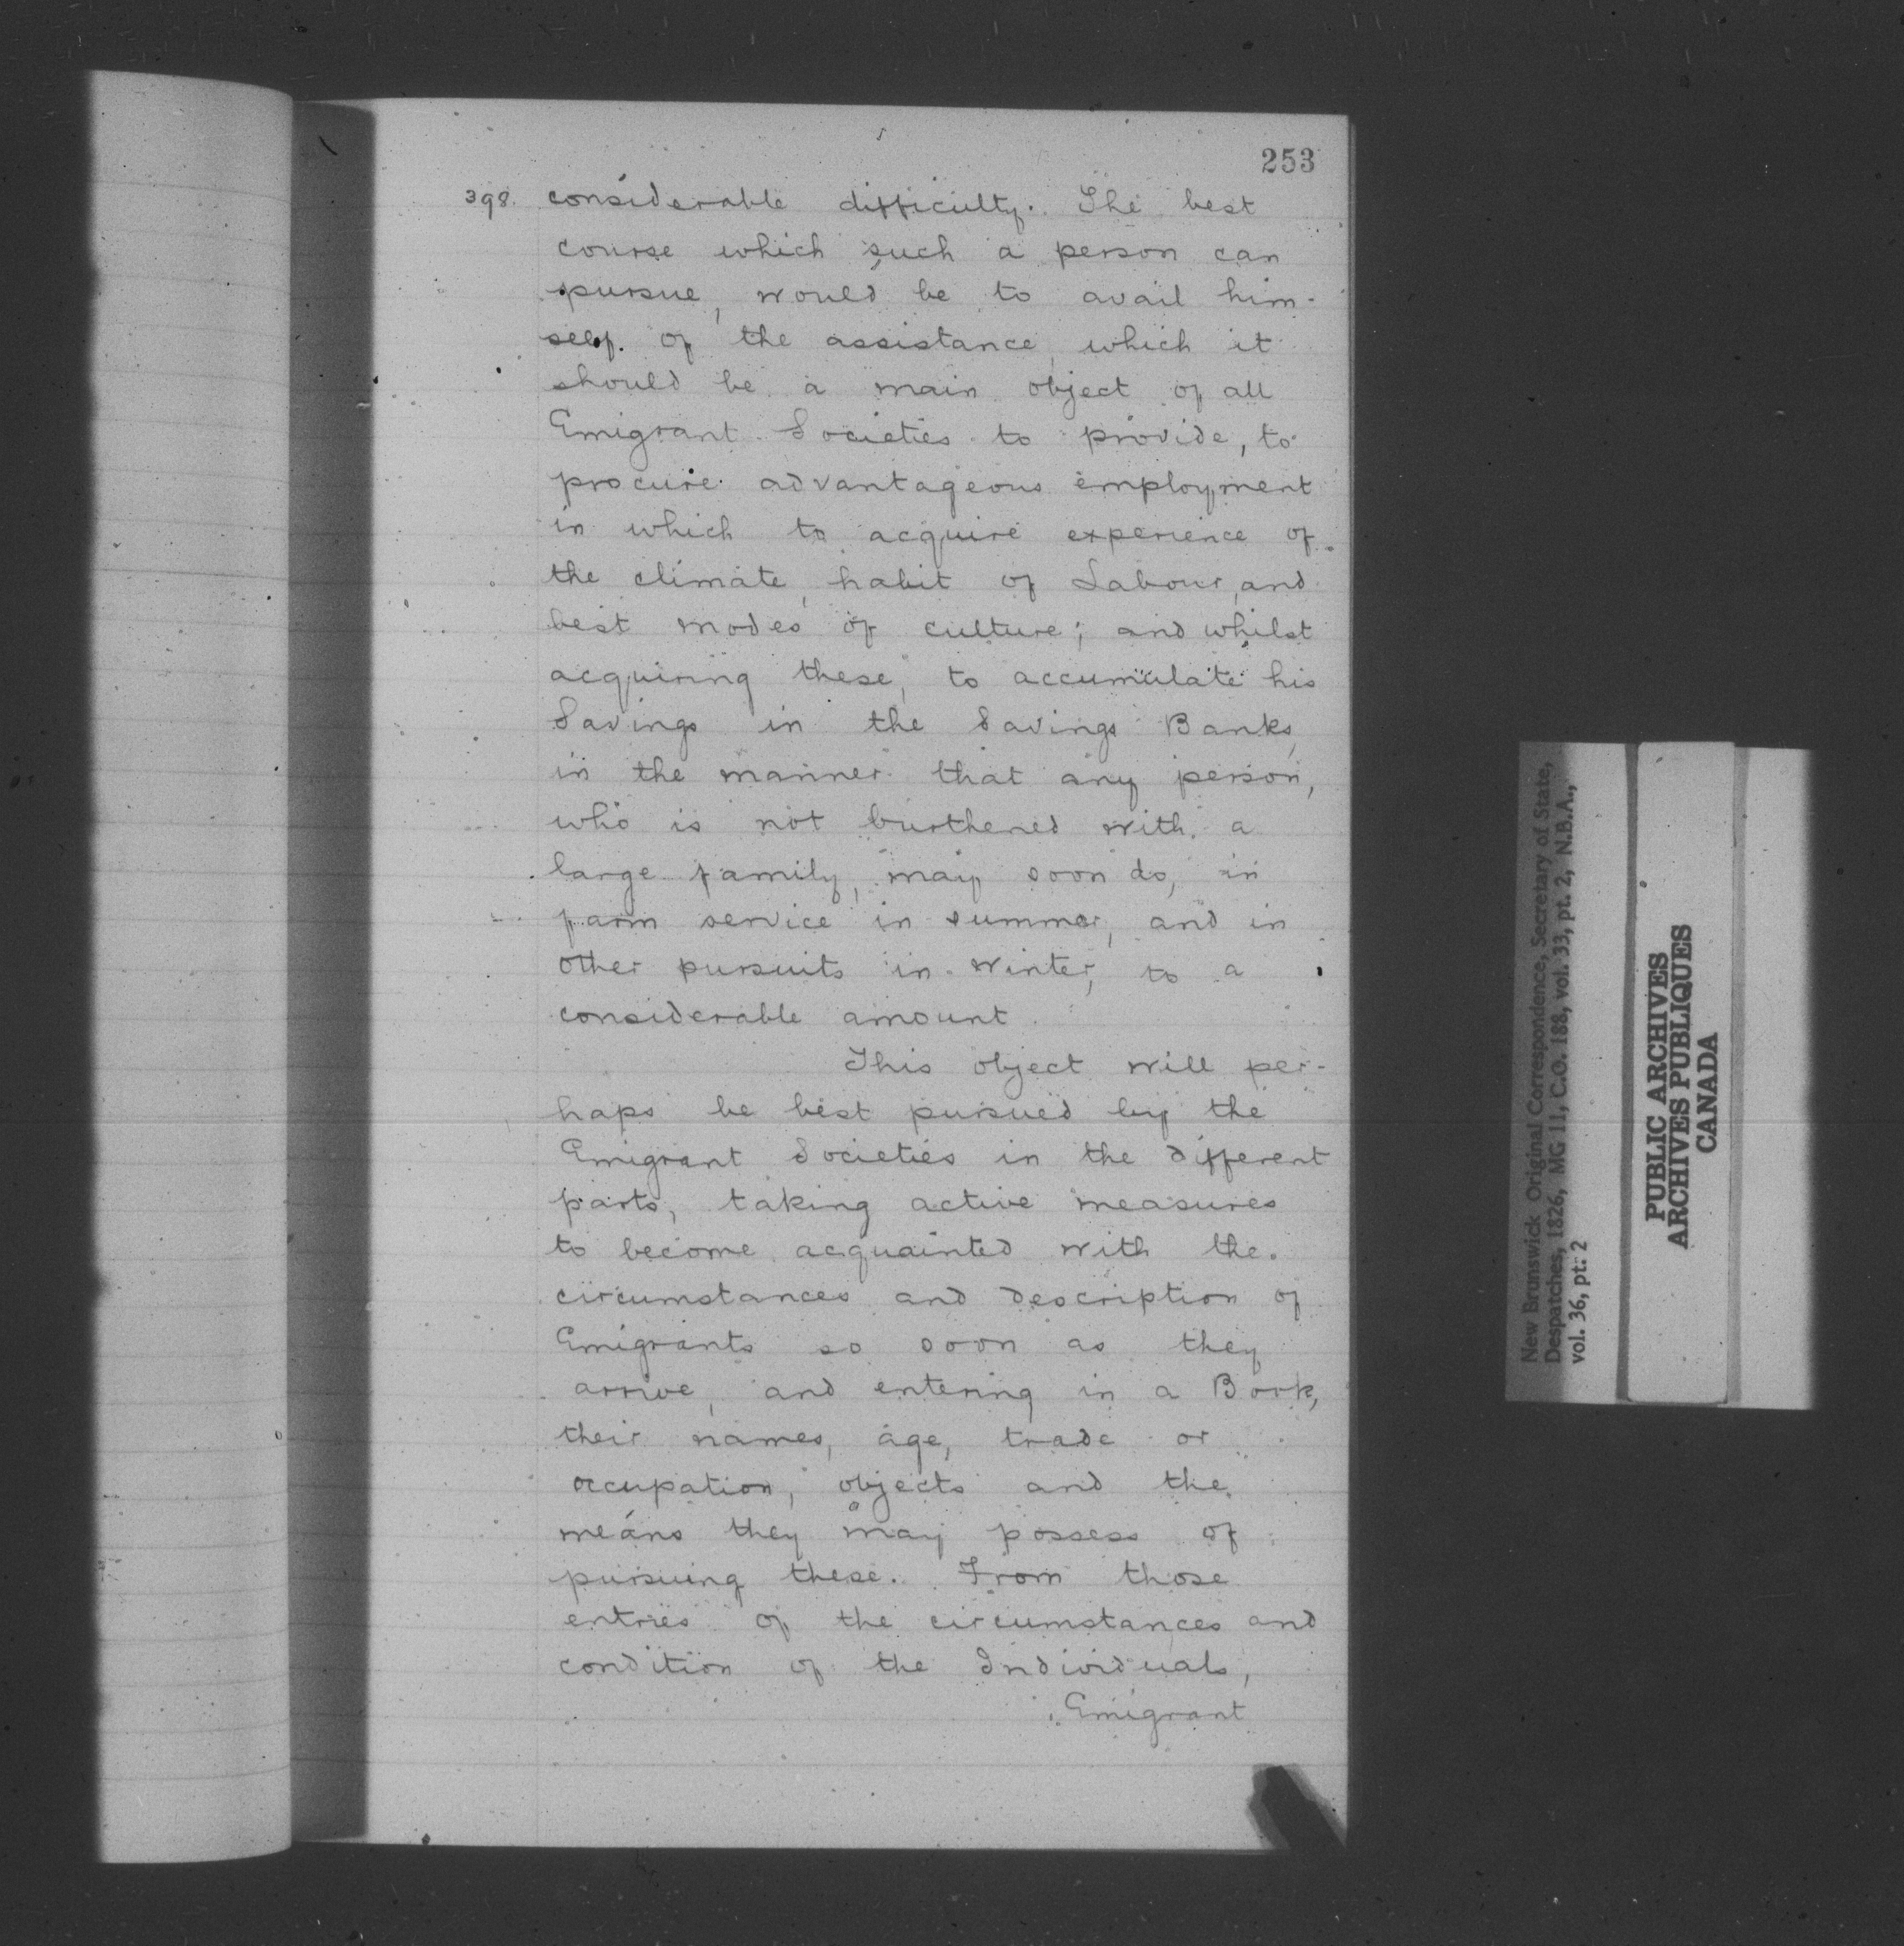 253
398. considerable difficulty. The best
course which such a person can
pursue, would be to avail him-
self of the assistance, which it
should be a main object of all
Emigrant Societies to provide, to
procure advantageous employment
in which to acquire experience of
the climate, habit of Labour, and
best modes of culture; and whilst
acquiring these, to accumulate his
Savings in the Savings Banks,
in the manner that any person,
who is not burthened with a
large family, may soon do, in
farm service in summer, and in
other pursuits in Winter, to a
considerable amount.
This object will per-
haps be best pursued by the
Emigrant Societies in the different
parts, taking active measures
to become acquainted with the
circumstances and description of
Emigrants so soon as they
arrive, and entering in a Book,
their names, age, trade or
occupation, objects and the
means they may possess of
pursuing these. From those
entries of the circumstances and
condition of the Individuals,
Emigrant
New Brunswick Original Correspondence, Secretary of State,
Despatches, 1826, MG 11, C.O. 188, vol. 33, pt. 2, N.B.A.,
vol. 36, pt. 2
PUBLIC ARCHIVES
ARCHIVES PUBLIQUES
CANADA